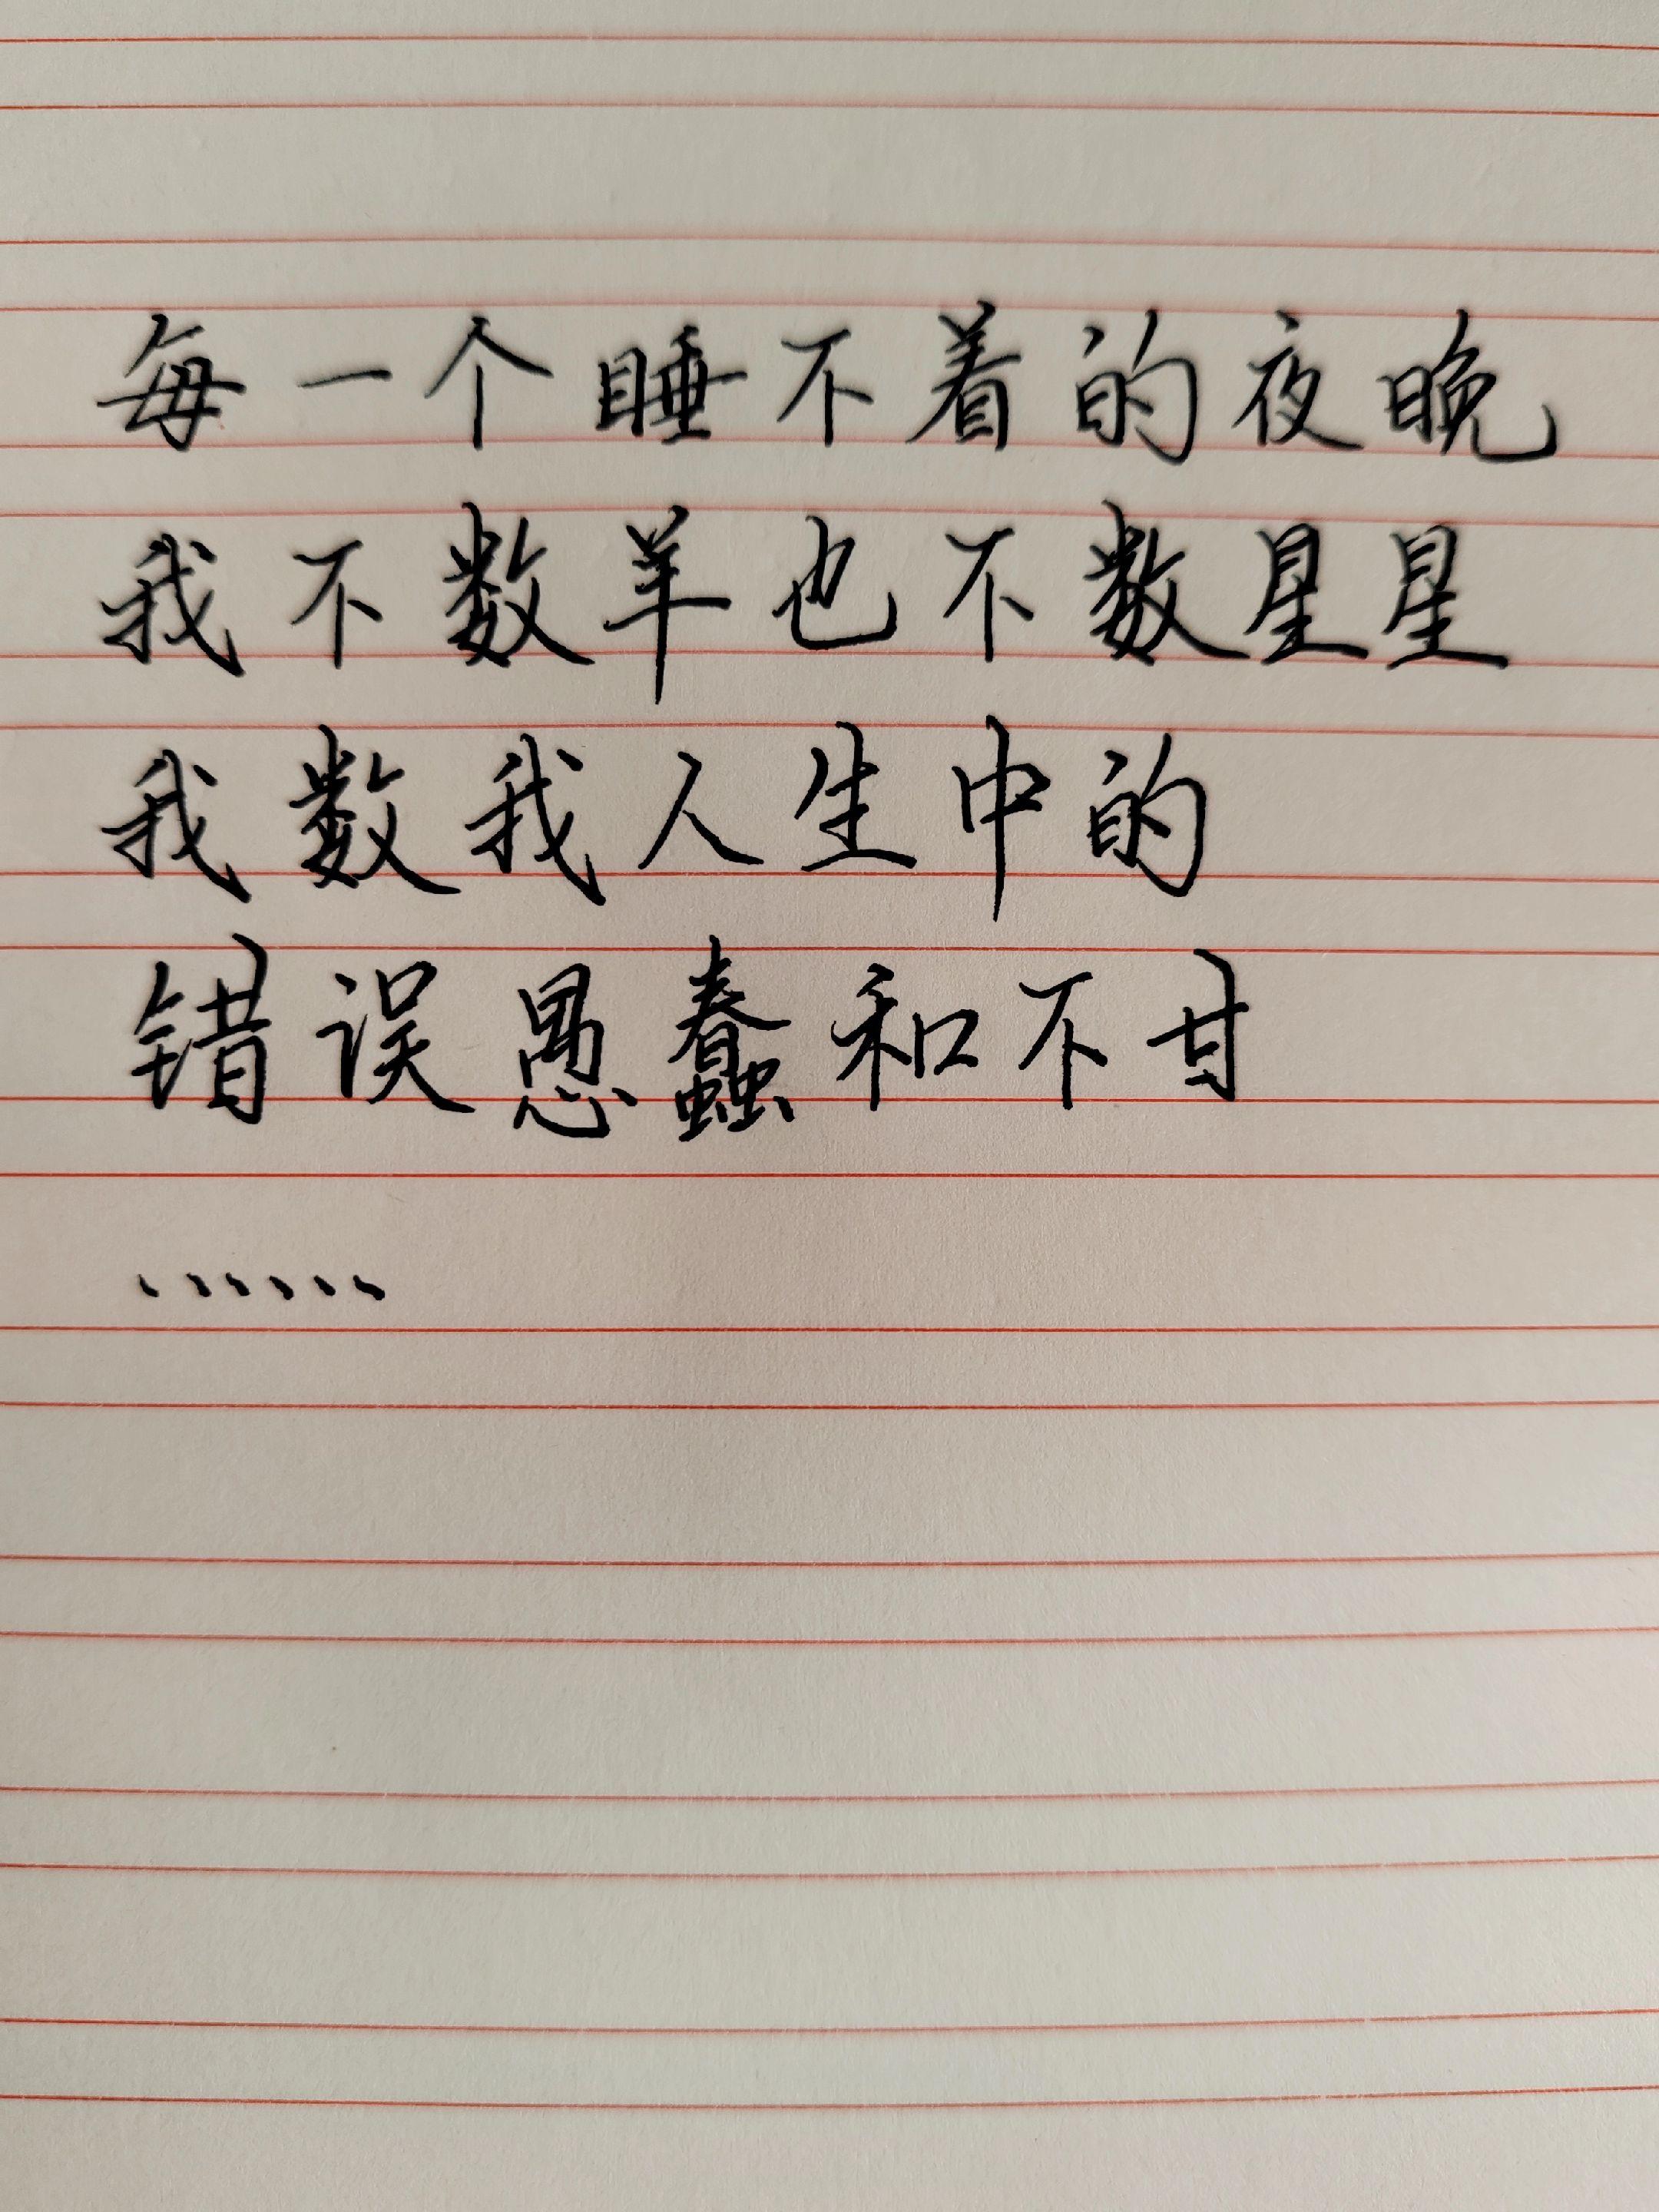 每一个睡不着的夜晚
我不数羊也不数星星
我数我人生中的
错误愚蠢和不甘
……